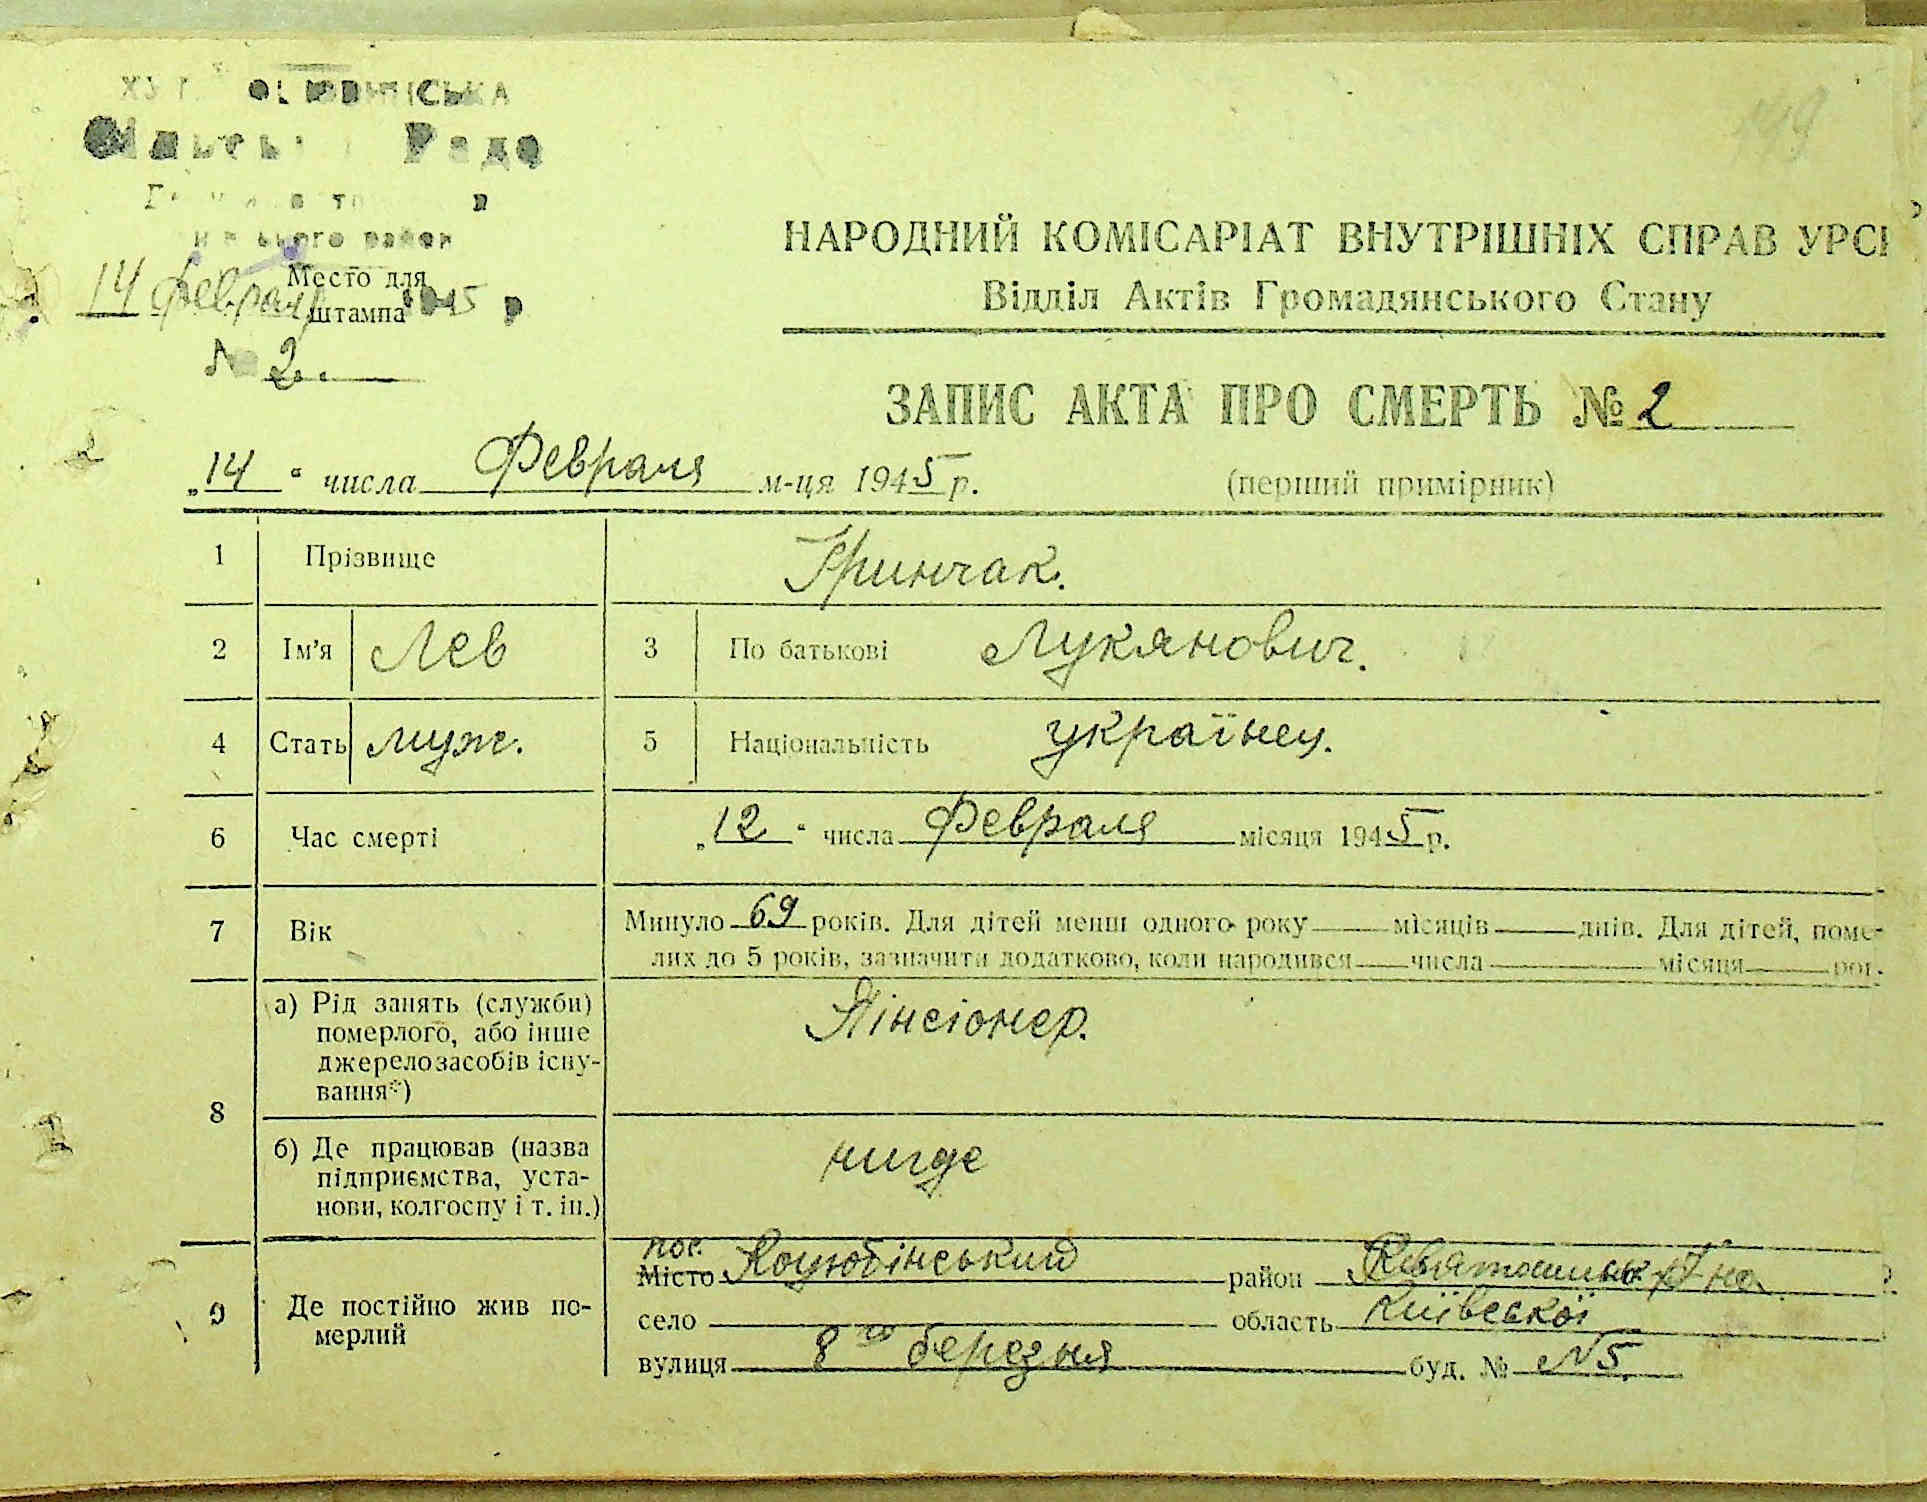 Сільська Рада
14 Февраля 1945 р
Место для
штампа
№ 2
149
НАРОДНИЙ КОМІСАРІАТ ВНУТРІШНІХ СПРАВ УРСР
Відділ Актів Громадянського Стану
ЗАПИС АКТА ПРО СМЕРТЬ № 2
2
„14“ числа Февраля м-ця 1945 р. (перший примірник)
1 Прізвище Гринчак.
2 Ім'я Лев 3 По батькові Лукянович.
4 Стать муж. 5 Національність українец.
6 Час смерті „12“ числа Февраля місяця 1945 р.
7 Вік Минуло 69 років. Для дітей менш одного року місяців днів. Для дітей, поме-
лих до 5 років, зазначити додатково, коли народився числа місяця рог.
8 а) Рід занять (служби)
померлого, або інше
джерело засобів існу-
вання*)
Пінсіонер.
б) Де працював (назва
підприємства, уста-
нови, колгоспу і т. ін.)
нигде
9 Де постійно жив по-
мерлий
пос.
Місто Коцюбінський район
село область Київської
вулиця 8го березня буд. № N5.